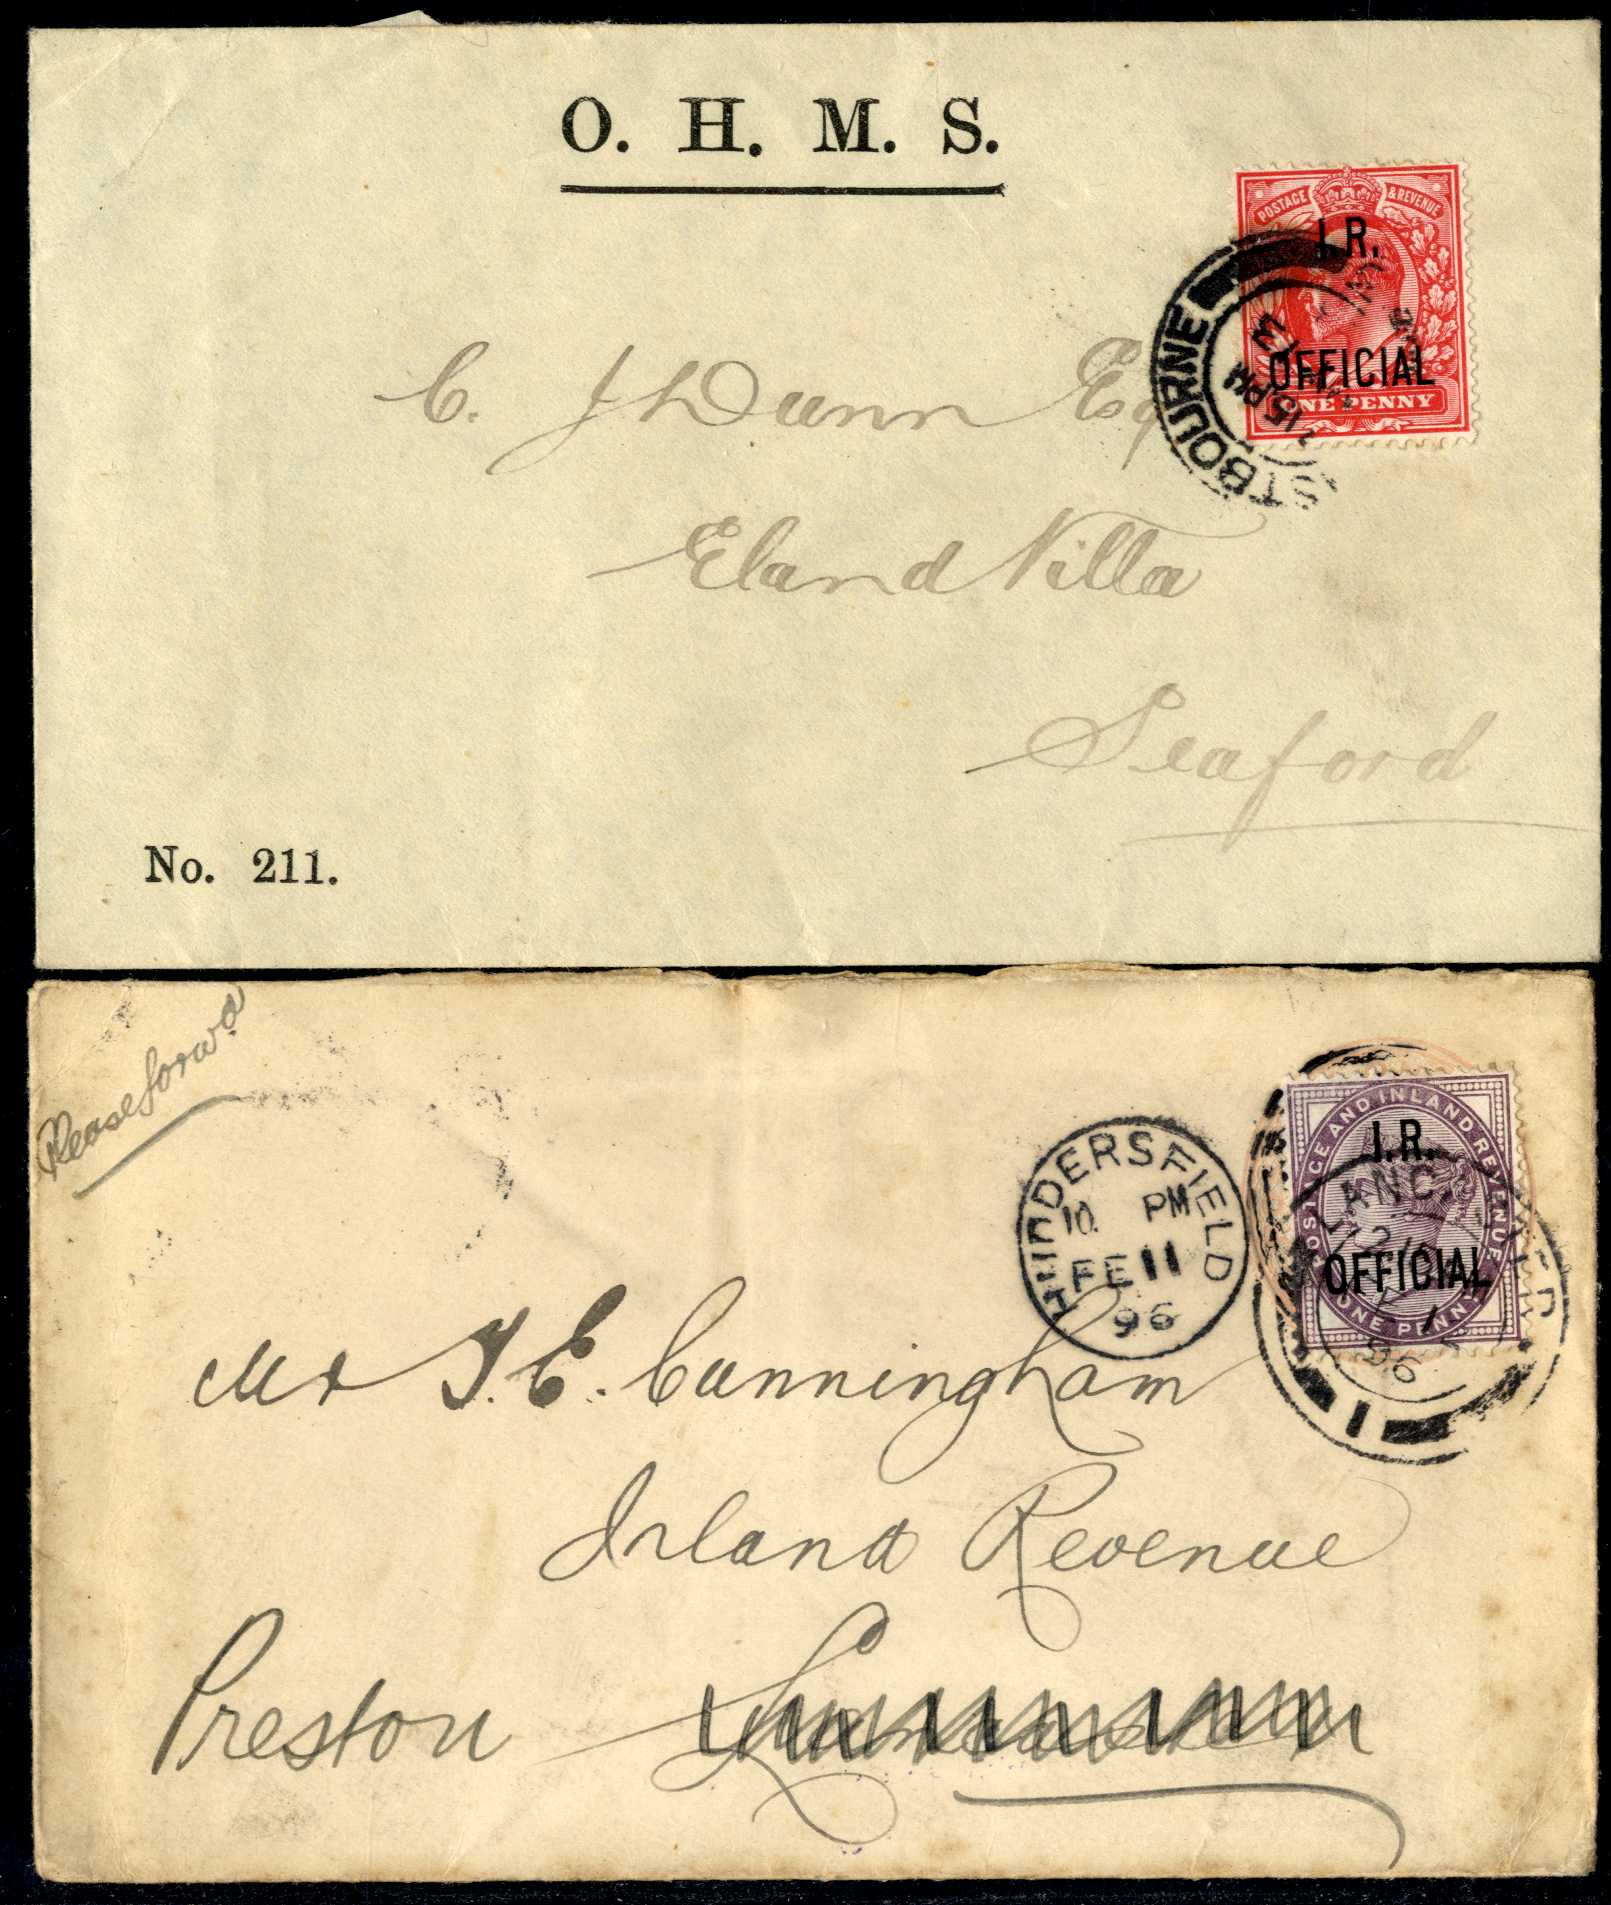 O. H. M. S.
POSTAGE & REVENUE
I.R.
OFFICIAL
ONE PENNY
STBOURNE
2 15 PM
C. J h Dunn Esq
Eland Villa
Seaford
No. 211.
Please forwd
POSTAGE AND INLAND REVENUE
I.R.
OFFICIAL
ONE PENNY
HUDDERSFIELD
10 PM
FE 11
96
LANCASTER
96
1
Mr J. E. Cunningham
Inland Revenue
Preston Lancaster